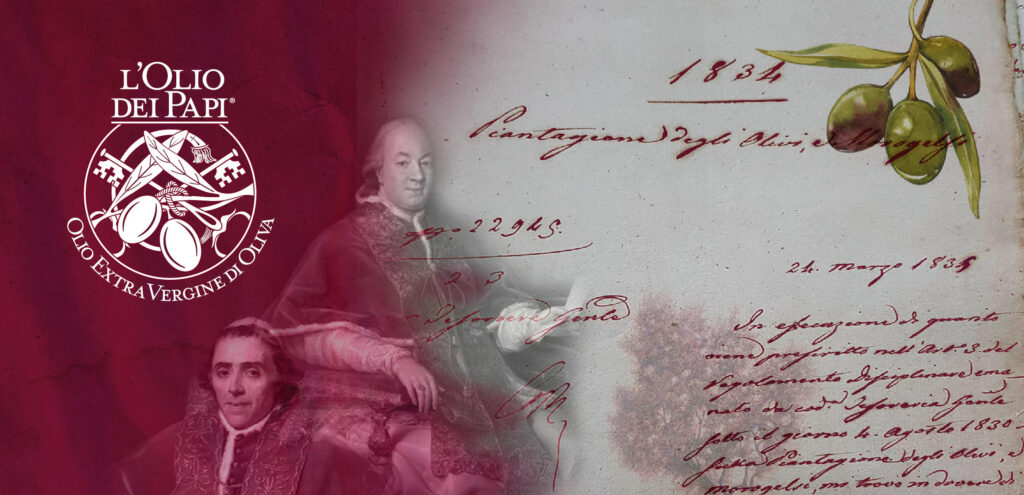 L'OLIO
DEI PAPI®
OLIO EXTRA VERGINE DI OLIVA
1834
Piantagione degli Olivi, e Morogelsi
22945.
2 3
24. marzo 1835
In esecuzione di quanto
viene prescritto nell'Art.° 3. del
Regolamento Disciplinare ema
nato da cod.ª Tesoreria Genle
sotto il giorno 4. Agosto 1830
sulla Piantagione degli Olivi, e
morogelsi, mi trovo in dovere di